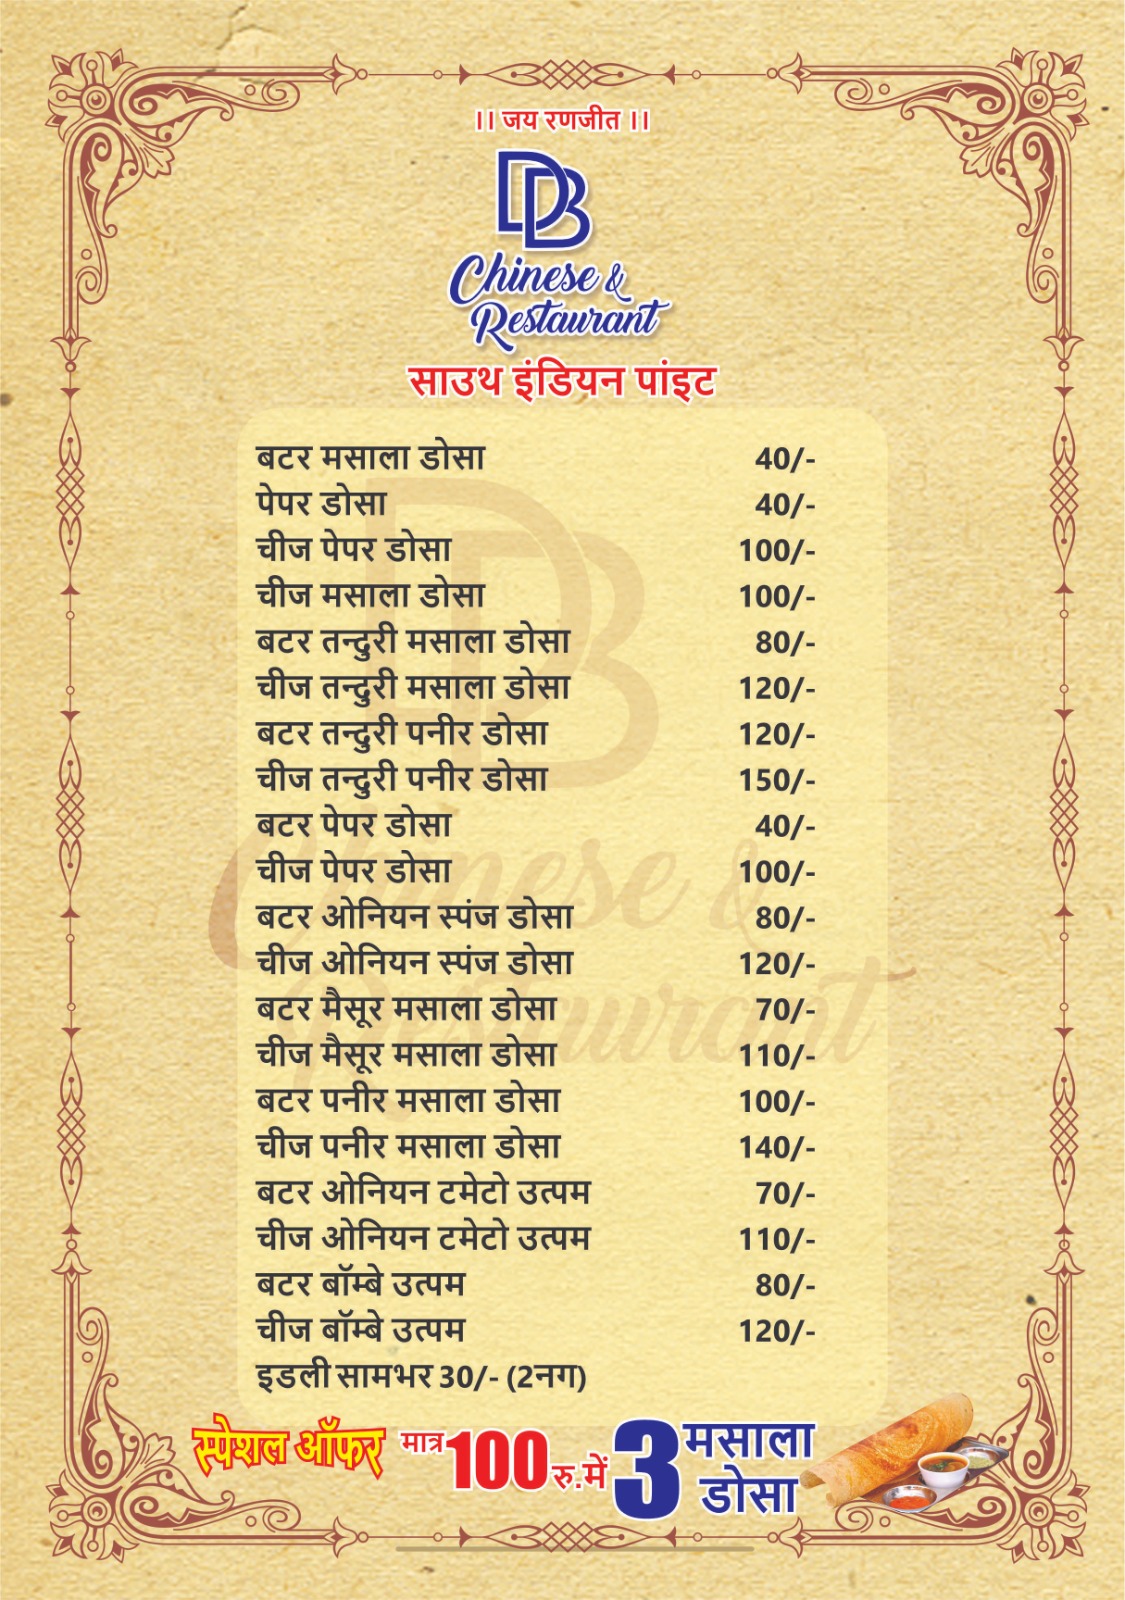 ।। जय रणजीत ।।
DB
Chinese &
Restaurant
साउथ इंडियन पांइट
बटर मसाला डोसा 40/-
पेपर डोसा 40/-
चीज पेपर डोसा 100/-
चीज मसाला डोसा 100/-
बटर तन्दुरी मसाला डोसा 80/-
चीज तन्दुरी मसाला डोसा 120/-
बटर तन्दुरी पनीर डोसा 120/-
चीज तन्दुरी पनीर डोसा 150/-
बटर पेपर डोसा 40/-
चीज पेपर डोसा 100/-
बटर ओनियन स्पंज डोसा 80/-
चीज ओनियन स्पंज डोसा 120/-
बटर मैसूर मसाला डोसा 70/-
चीज मैसूर मसाला डोसा 110/-
बटर पनीर मसाला डोसा 100/-
चीज पनीर मसाला डोसा 140/-
बटर ओनियन टमेटो उत्पम 70/-
चीज ओनियन टमेटो उत्पम 110/-
बटर बॉम्बे उत्पम 80/-
चीज बॉम्बे उत्पम 120/-
इडली सामभर 30/- (2नग)
स्पेशल ऑफर मात्र 100 रु.में 3 मसाला
डोसा